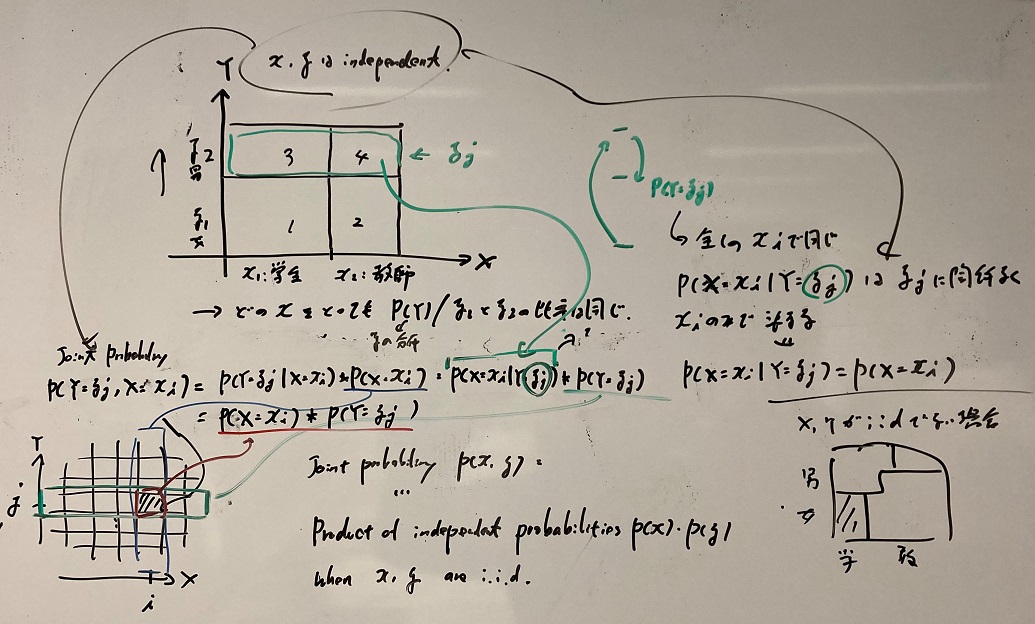 x, y は independent.
Y
y2
男
3
4
← yj
y1
女
1
2
X
x1:学生
x2:教師
→ どの x をとっても P(Y) / y1 と y2 の比率は同じ.
yの分布
P(Y=yj)
↳ 全ての xi で同じ
P(X=xi|Y=yj) は yj に関係なく
xi のみで決まる
P(X=xi|Y=yj) = P(X=xi)
Joint probability
P(Y=yj, X=xi) = P(Y=yj|X=xi) * P(X=xi) = P(X=xi|Y=yj) * P(Y=yj)
= P(X=xi) * P(Y=yj)
Y
j
X
i
Joint probability p(x, y) =
...
Product of independent probabilities p(x)・p(y)
when x, y are i.i.d.
X, Y が i.i.d でない場合
男
女
学
教